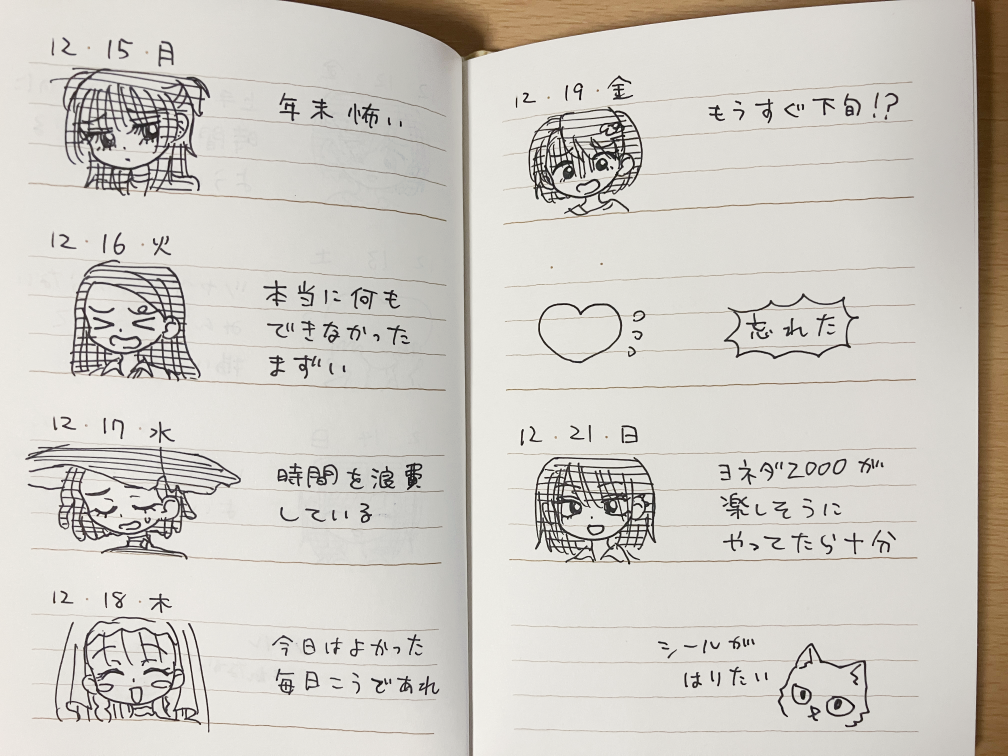 12・15・月
年末怖い
12・16・火
本当に何も
できなかった
まずい
12・17・水
時間を浪費
している
12・18・木
今日はよかった
毎日こうであれ
12・19・金
もうすぐ下旬!?
忘れた
12・21・日
ヨネダ2000が
楽しそうに
やってたら十分
シールが
はりたい